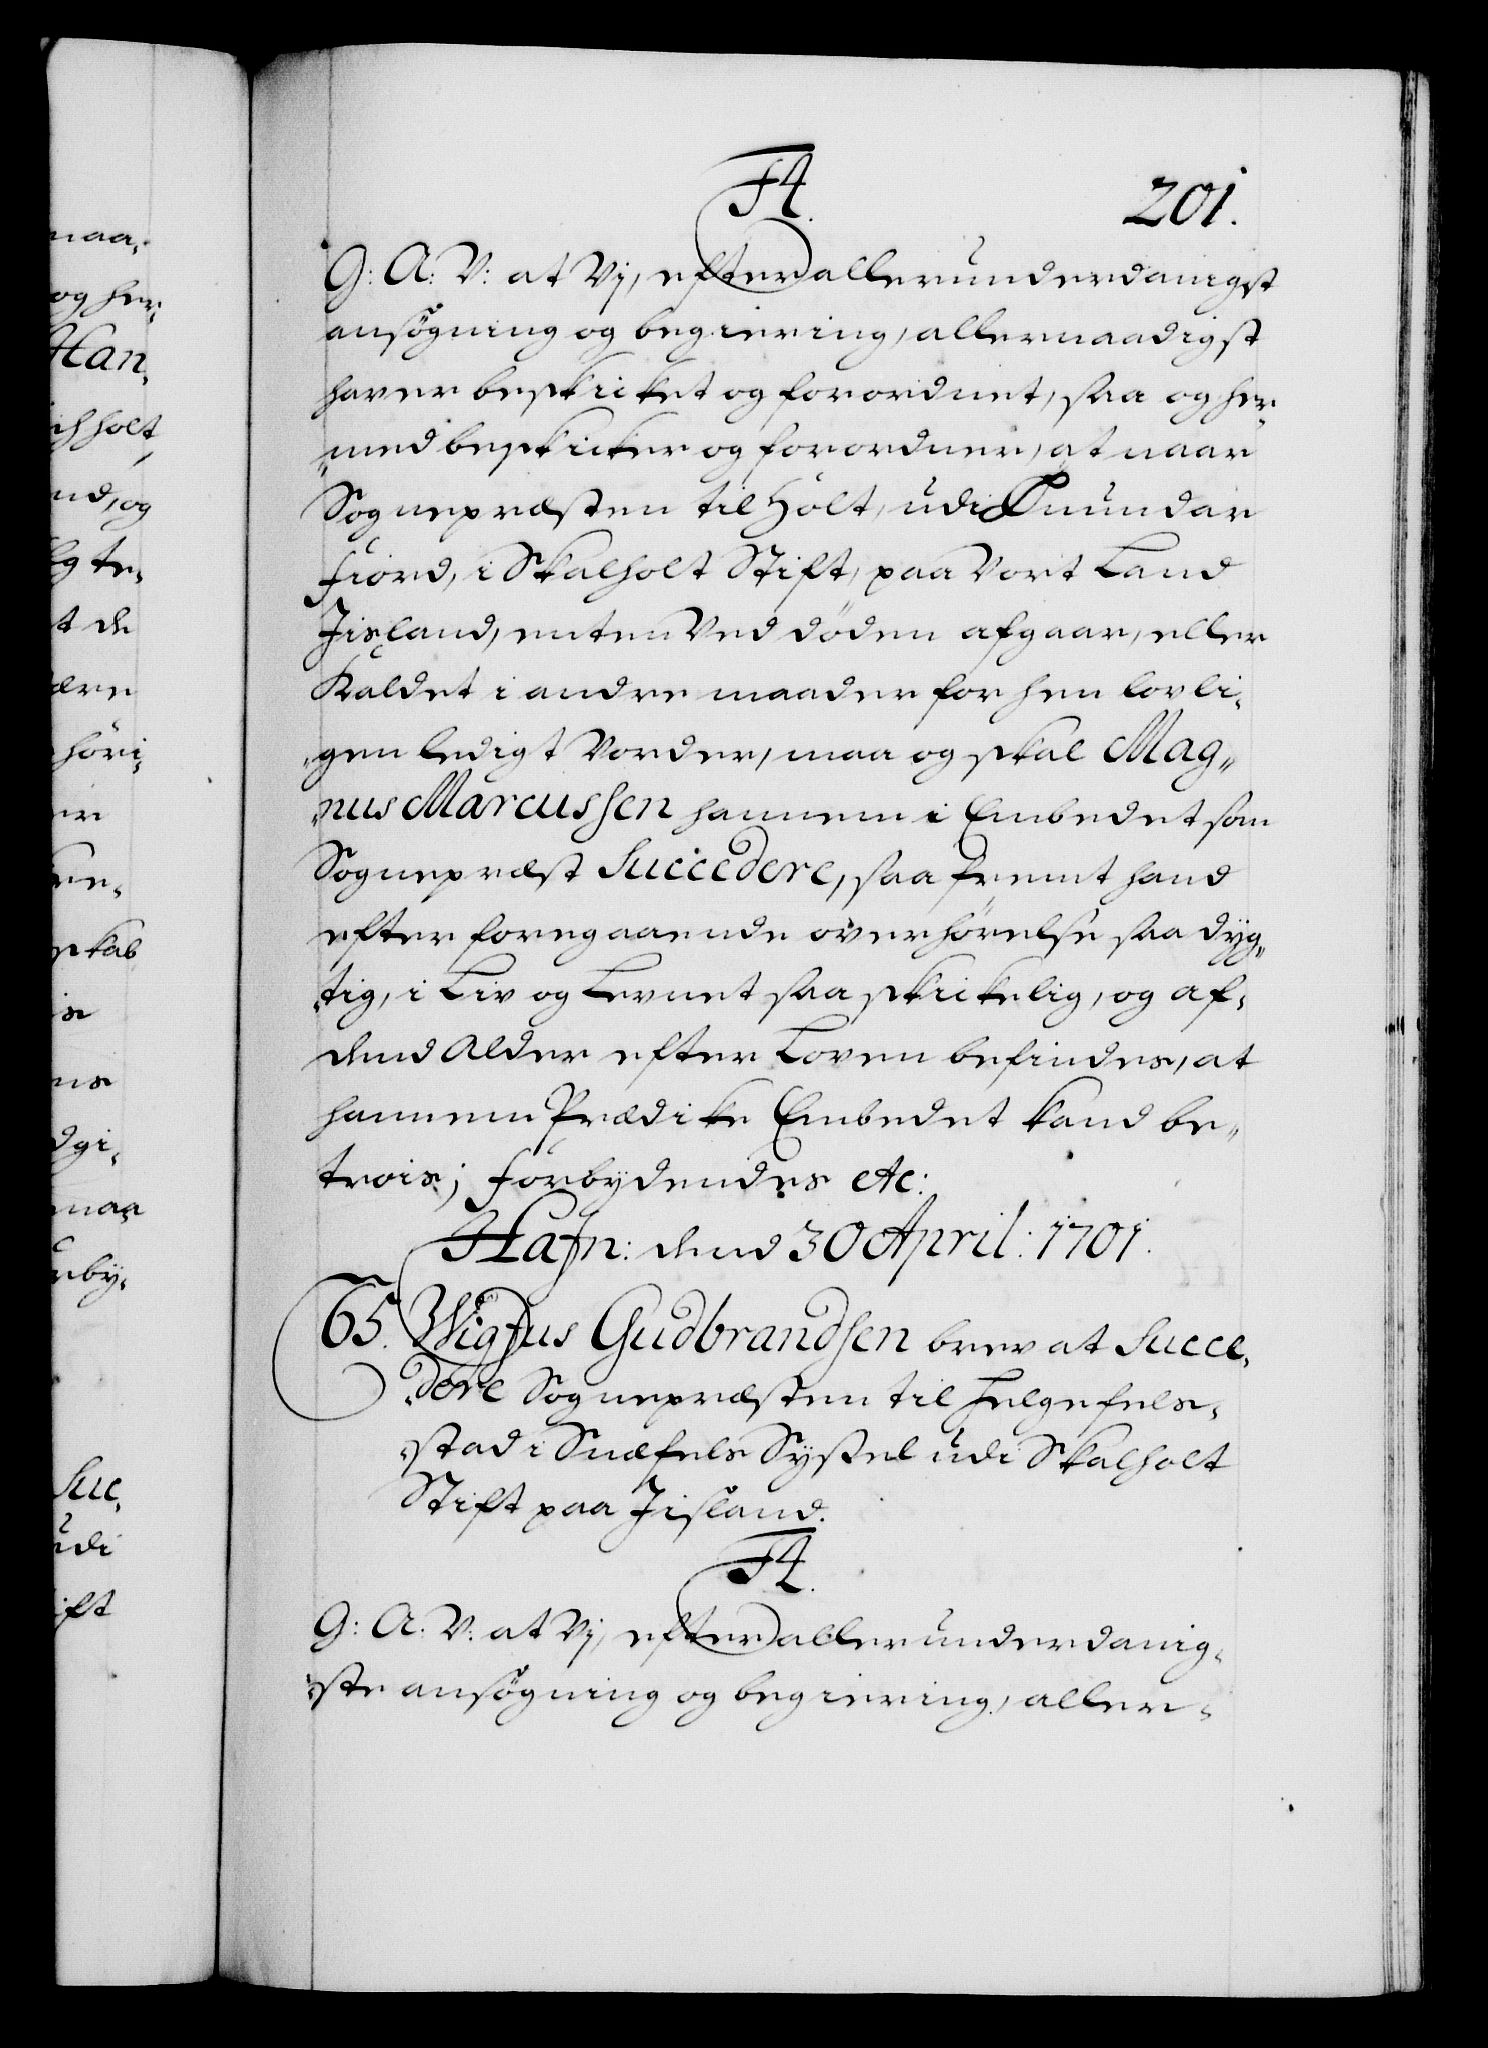 F4.
201.
G: A: V: at Vj, efter allerunderdanigst
ansögning og begiering, allernaadigst
haver beskicket og forordnet, saa og her-
med beskicker og forordner, at naar
Sognepræsten til Holt, udi Ønundar
fiord, i Skalholt Stift, paa Vort Land
Jisland, enten Ved döden afgaar, eller
Kaldet i andre maader for hen lovli-
gen ledigt Vorder, maa og skal Mag-
nus Marcussen hannem i Embedet som
Sognepræst Succedere, saa fremt hand
efter foregaaende overhörelse saa dyg-
tig, i Liv og Levnet saa skickelig, og af-
dend Alder efter Loven befindes, at
hannem Prædike Embedet kand be-
trois; Forbydendes etc:
Hafn: dend 30 April: 1701.
65. Wigfus Gudbrandsen brev at Succe-
dere Sognepræsten til Helgefels-
stad i Snæfels Syssel udi Skalholt
Stift paa Jisland.
F4.
G: A: V: at Vj, efter allerunderdanig-
ste ansögning og begiering, aller-
naa-
og her-
Han-
holt,
nd, og
t de
höri-
skab
dgi-
maa
rby-
Suc-
udi
ift